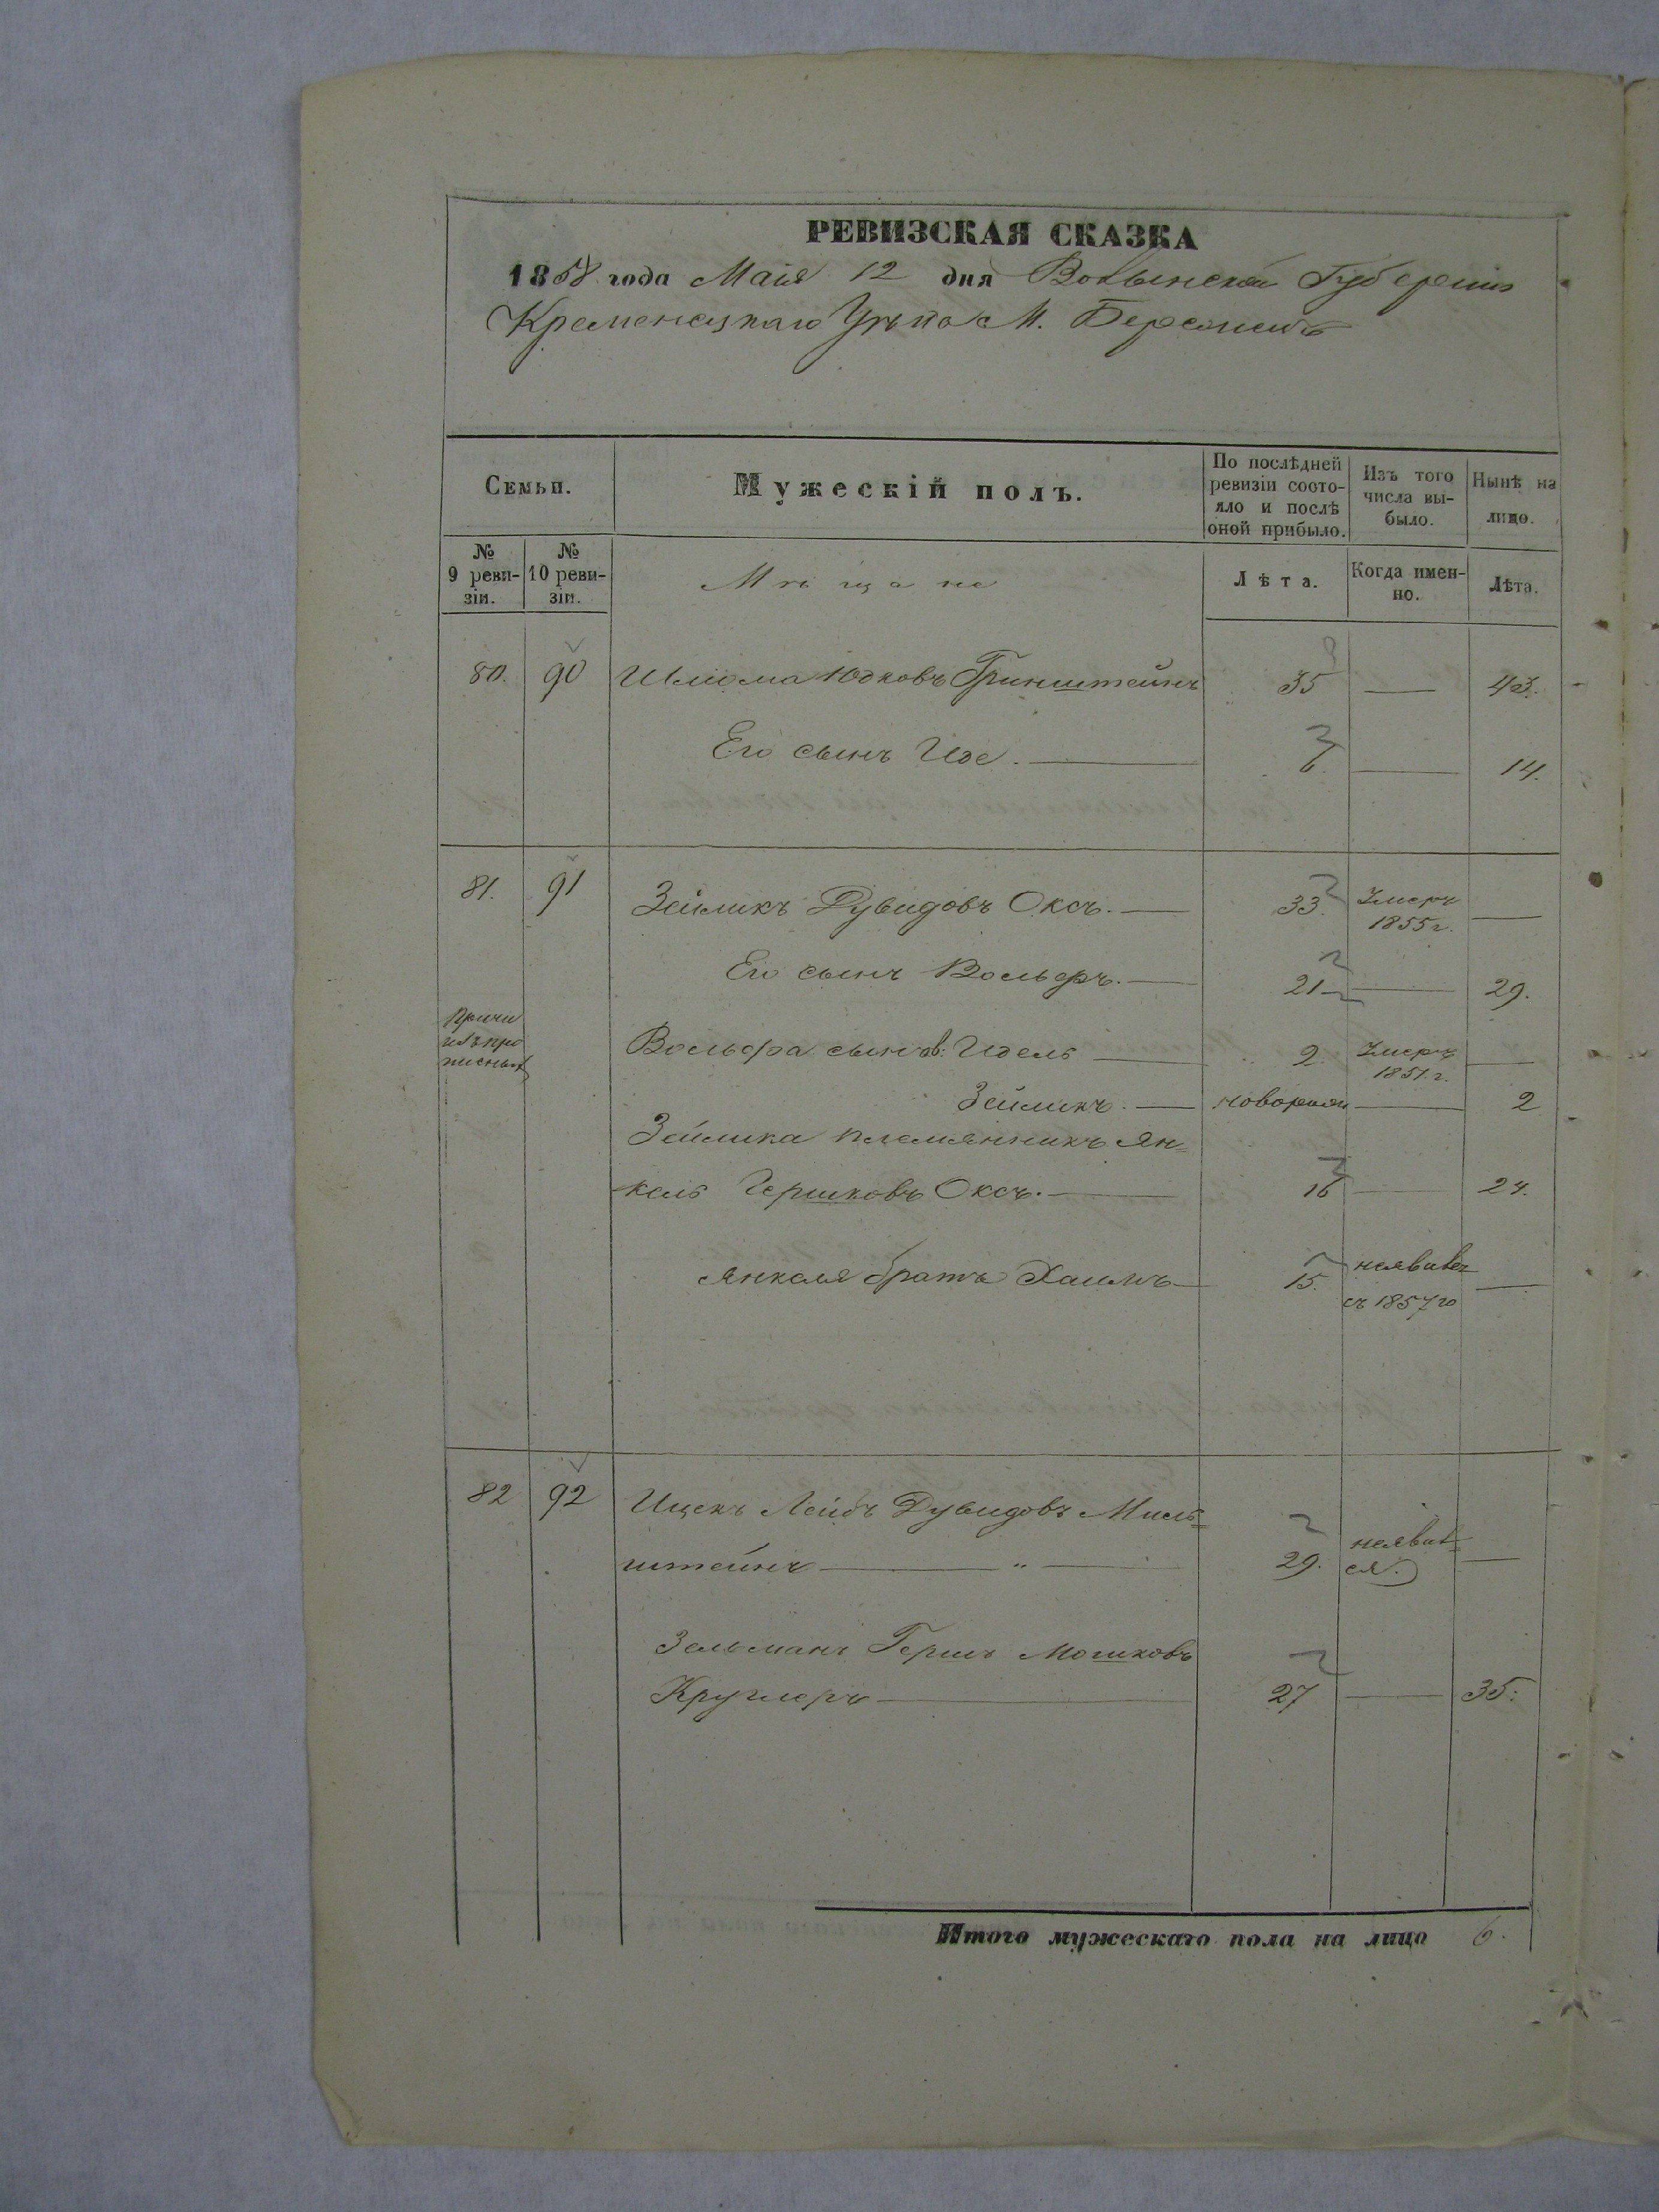 РЕВИЗСКАЯ СКАЗКА
1858 года Маія 12 дня Волынской Губерніи
Кременецкаго Уѣзда М. Бережецъ
Семьи.
Мужескій полъ.
По послѣдней ревизіи состояло и послѣ оной прибыло.
Изъ того числа выбыло.
Нынѣ на лицо.
№ 9 ревизіи.
№ 10 ревизіи.
Мѣщане
Лѣта.
Когда именно.
Лѣта.
80. 90 Шлиома Юдковъ Гринштейнъ 35 — 43.
Его сынъ Иде. — 6. — 14.
81. 91 Зейликъ Дувидовъ Оксъ. — 33. Умеръ 1855 г. —
Его сынъ Вольфъ. — 21 — 29.
Причи
изъ про
писныхъ
Вольфа сынов: Идель — 2. Умеръ 1851. г. —
Зейликъ. — новорож — 2
Зейлика племянникъ Ян=
кель Гершковъ Оксъ. — 16 — 24.
Янкеля братъ Хаимъ — 15. неявивс съ 1857 го —
82 92 Ицекъ Лейбъ Дувидовъ Миль=
штейнъ — " — 29. неявил=
ся. —
Зельманъ Гершъ Мошковъ
Круглеръ — 27 — 35.
Итого мужескаго пола на лицо 6.